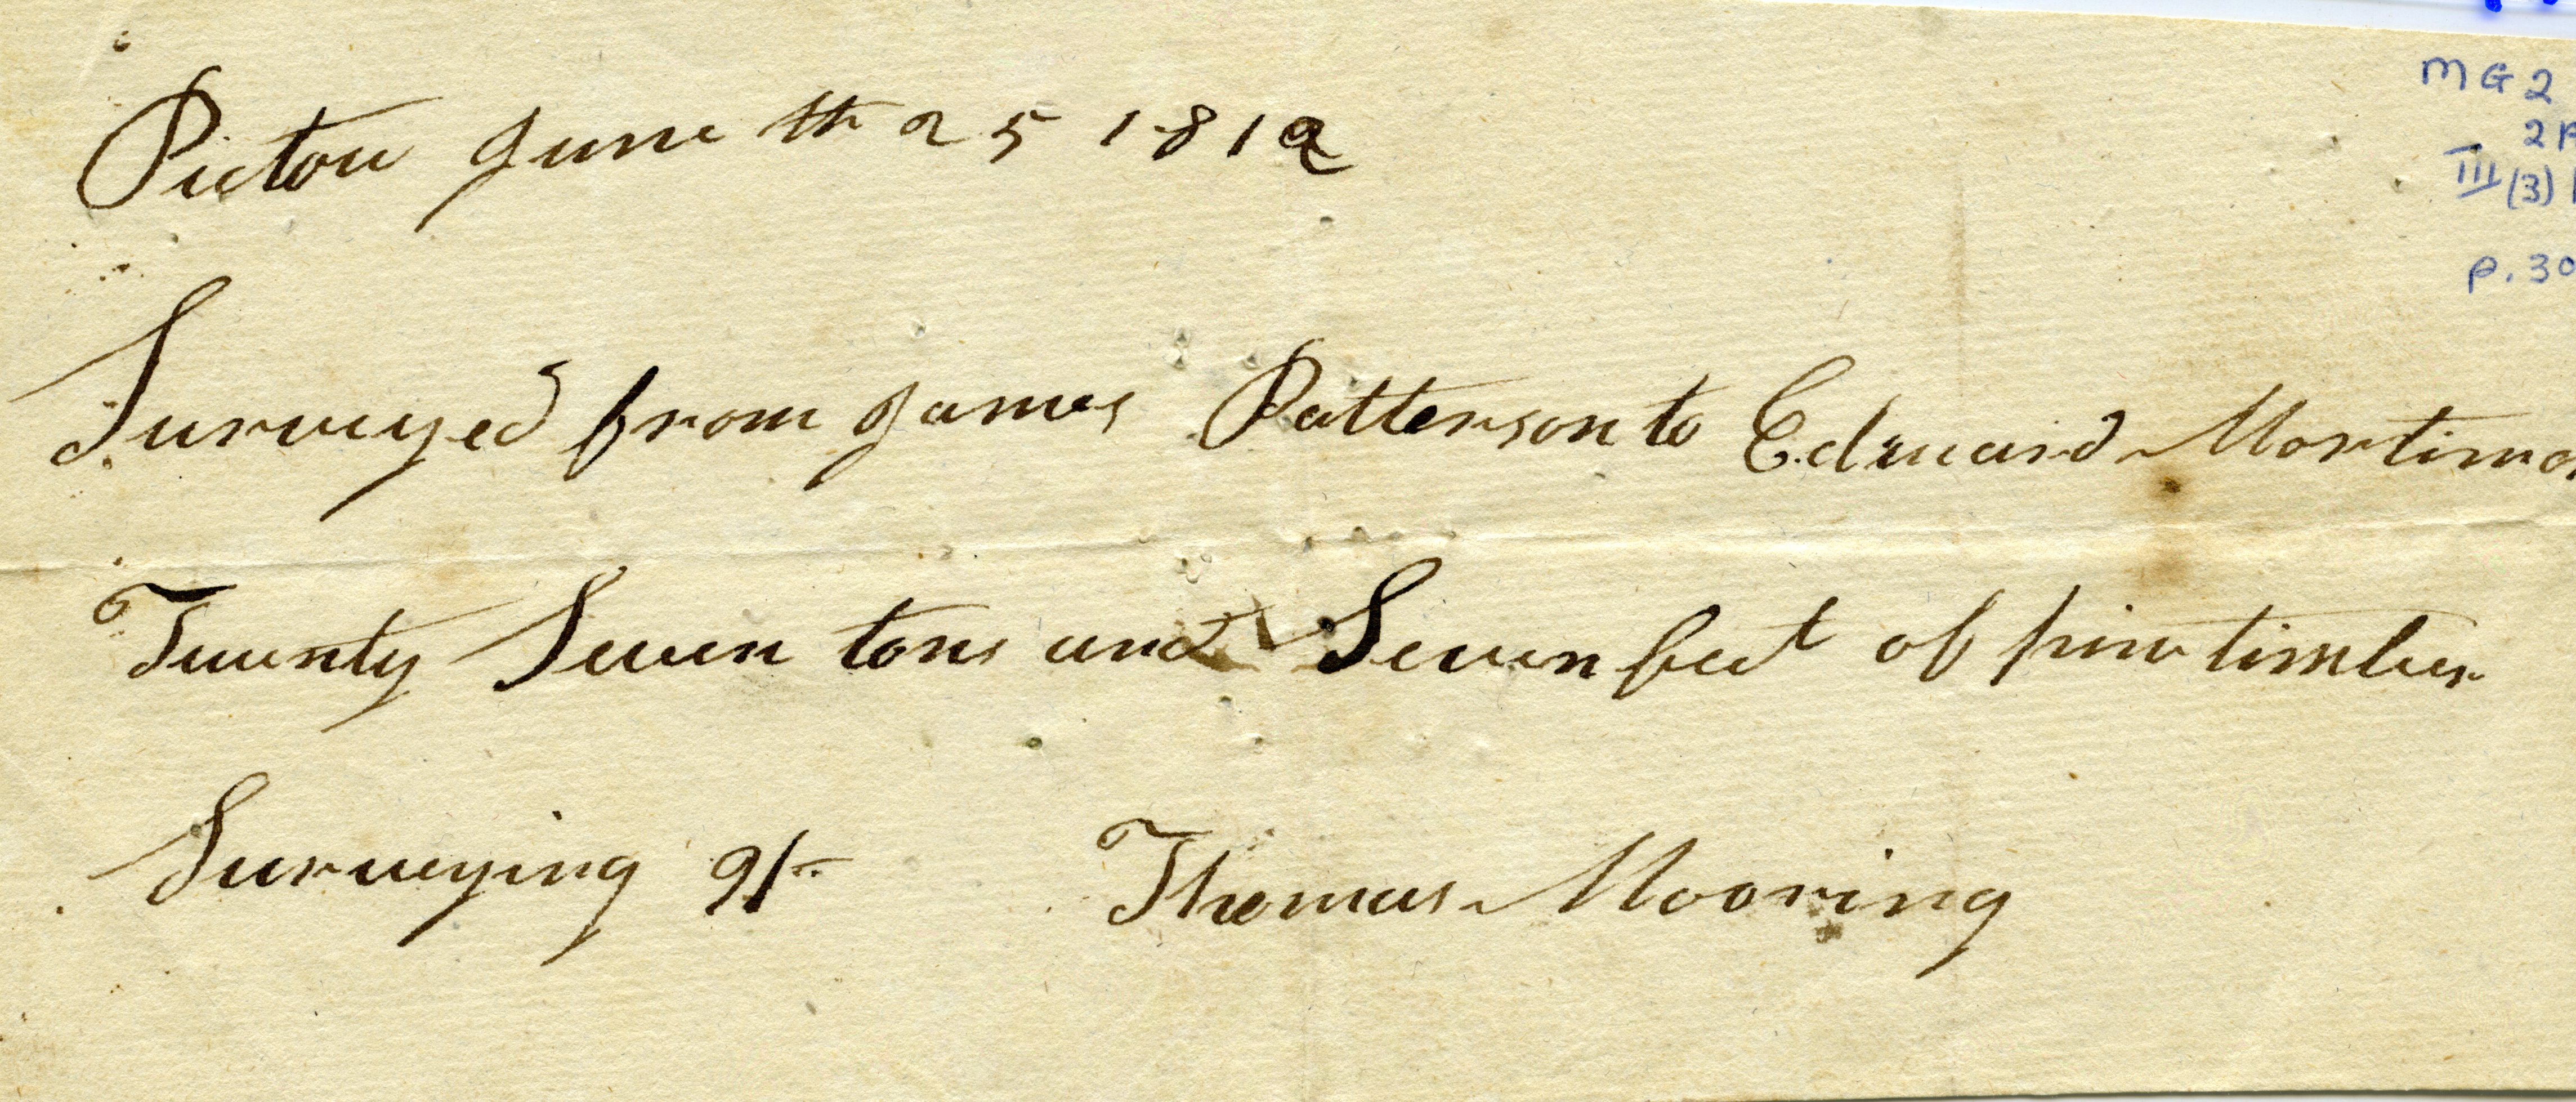 Pictou June th 25 1812
MG 2
2
III (3)
p. 30
Surveyed from James Patterson to Edward Mortimo
Twenty Seven tons and Seven feet of pine timber
Surveying 9/-
Thomas Mooring